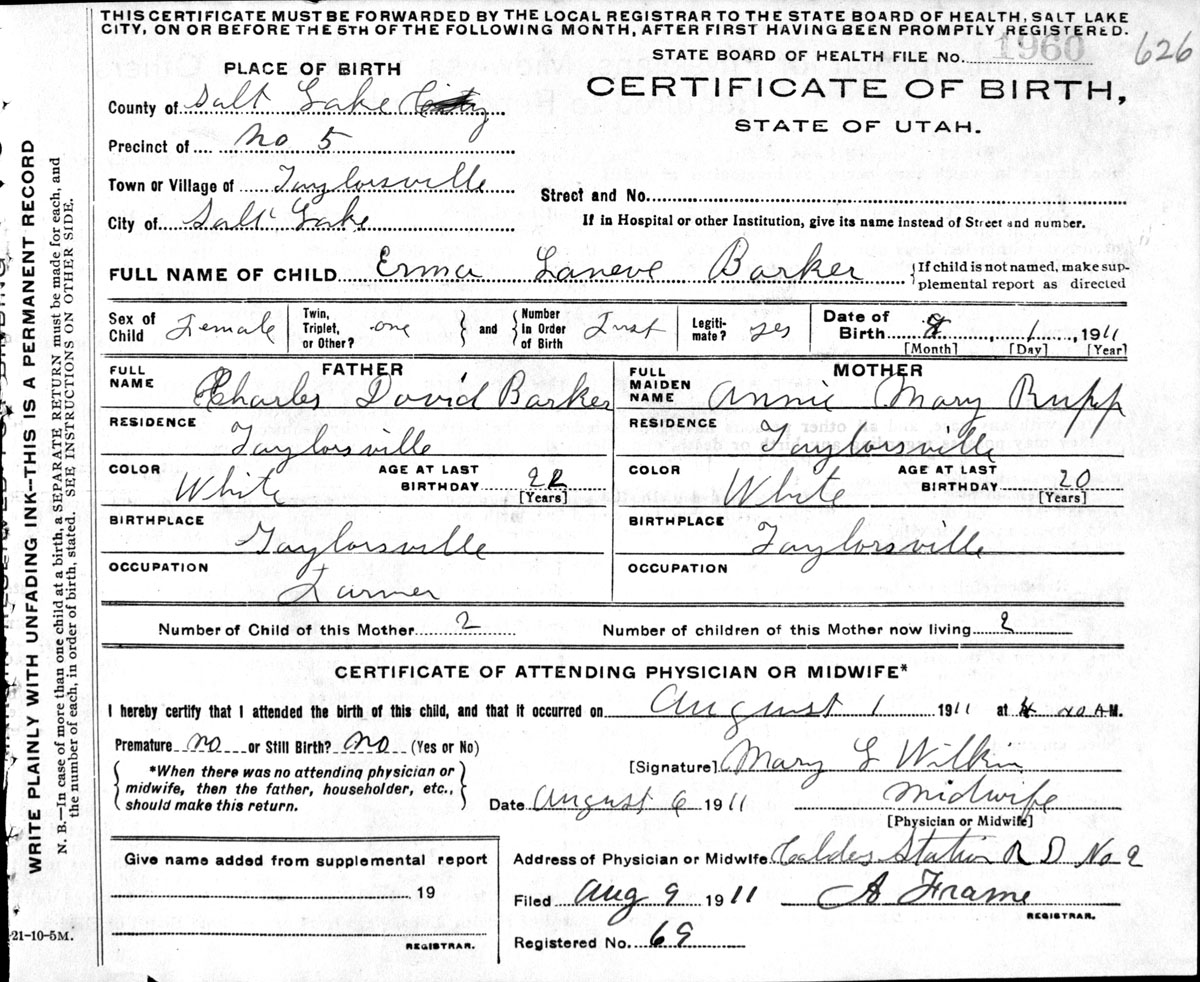 THIS CERTIFICATE MUST BE FORWARDED BY THE LOCAL REGISTRAR TO THE STATE BOARD OF HEALTH, SALT LAKE
CITY, ON OR BEFORE THE 5TH OF THE FOLLOWING MONTH, AFTER FIRST HAVING BEEN PROMPTLY REGISTERED.
STATE BOARD OF HEALTH FILE NO. 1960 626
PLACE OF BIRTH
CERTIFICATE OF BIRTH,
STATE OF UTAH.
County of Salt Lake
Precinct of No 5
Town or Village of Taylorsville
Street and No.
City of Salt Lake
If in Hospital or other Institution, give its name instead of Street and number.
FULL NAME OF CHILD Erma Laneve Barker
If child is not named, make sup-
plemental report as directed
Sex of Child Female
Twin, Triplet, or Other? one
and
Number In Order of Birth First
Legiti-mate? yes
Date of Birth 8, 1, 1911
[Month] [Day] [Year]
FATHER
FULL NAME Charles David Barker
RESIDENCE Taylorsville
COLOR White
AGE AT LAST BIRTHDAY 22
[Years]
BIRTHPLACE Taylorsville
OCCUPATION Farmer
MOTHER
FULL MAIDEN NAME Annie Mary Rupp
RESIDENCE Taylorsville
COLOR White
AGE AT LAST BIRTHDAY 20
[Years]
BIRTHPLACE Taylorsville
OCCUPATION
Number of Child of this Mother 2
Number of children of this Mother now living 2
CERTIFICATE OF ATTENDING PHYSICIAN OR MIDWIFE*
I hereby certify that I attended the birth of this child, and that it occurred on August 1 1911 at 4 20 A M.
Premature no or Still Birth? no (Yes or No)
*When there was no attending physician or
midwife, then the father, householder, etc.,
should make this return.
[Signature] Mary L Wilkin
Date August 6 1911
Midwife
[Physician or Midwife]
Give name added from supplemental report
19
REGISTRAR.
Address of Physician or Midwife Station R D No 2
Filed Aug 9 1911
A Frame
REGISTRAR.
Registered No. 69
-21-10-5M.
WRITE PLAINLY WITH UNFADING INK--THIS IS A PERMANENT RECORD
N. B.—In case of more than one child at a birth, a SEPARATE RETURN must be made for each, and
the number of each, in order of birth, stated. SEE INSTRUCTIONS ON OTHER SIDE.